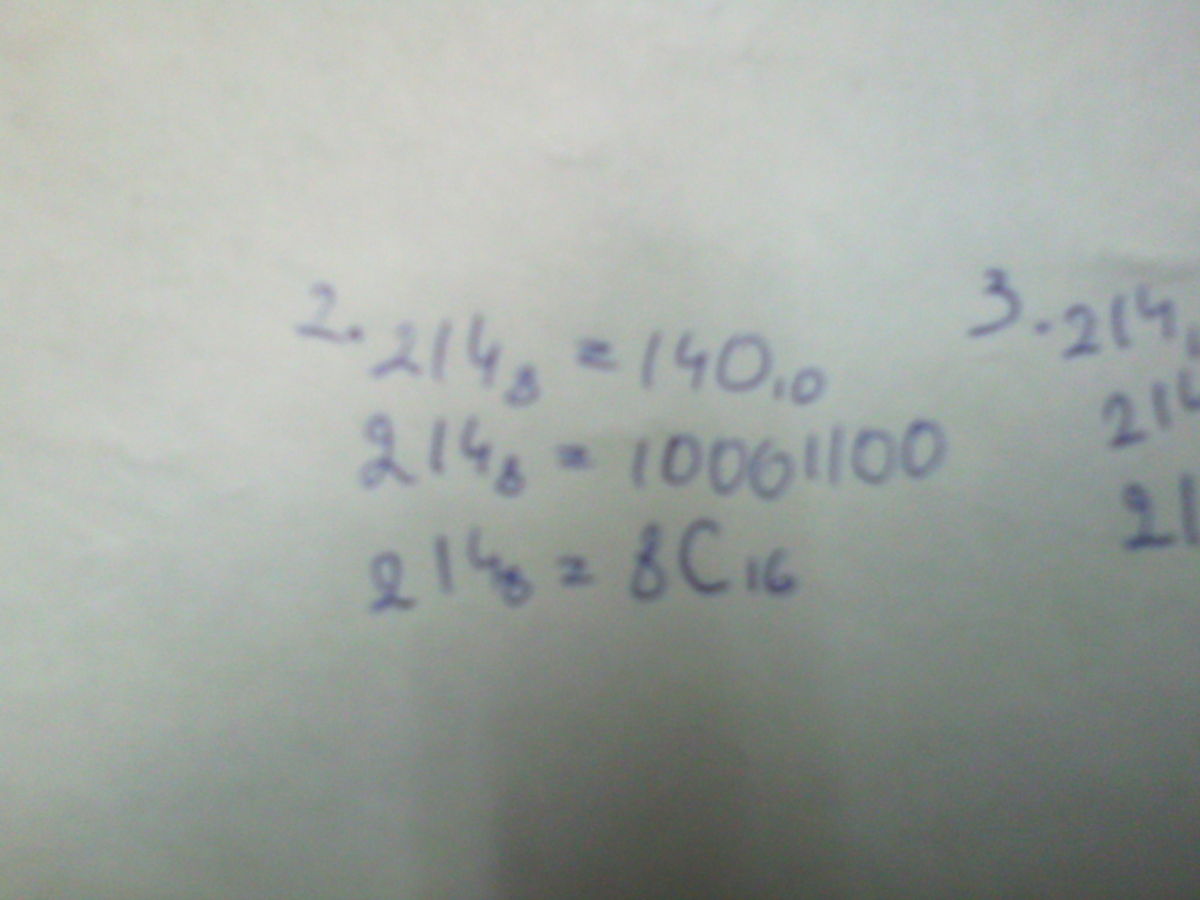 2. 214₈ = 140₁₀
214₈ = 10001100
214₈ = 8C₁₆
3. 214
214
21